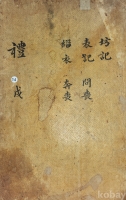 坊記
表記 問喪
緇衣 奔喪
禮 戌
kobay